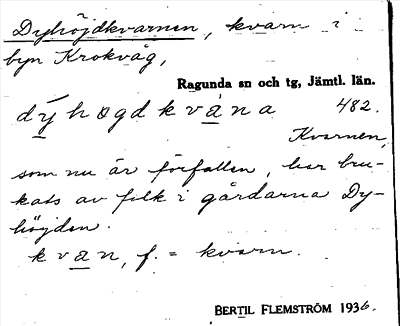 Dyhöjdkvarnen, kvarn i
byn Krokvåg,
Ragunda sn och tg, Jämtl. län.
dýhogdkvana 482.
Kvarnen,
som nu är förfallen, har bru-
kats av folk i gårdarna Dy-
höjden.
kvan, f. = kvarn.
BERTIL FLEMSTRÖM 1936.